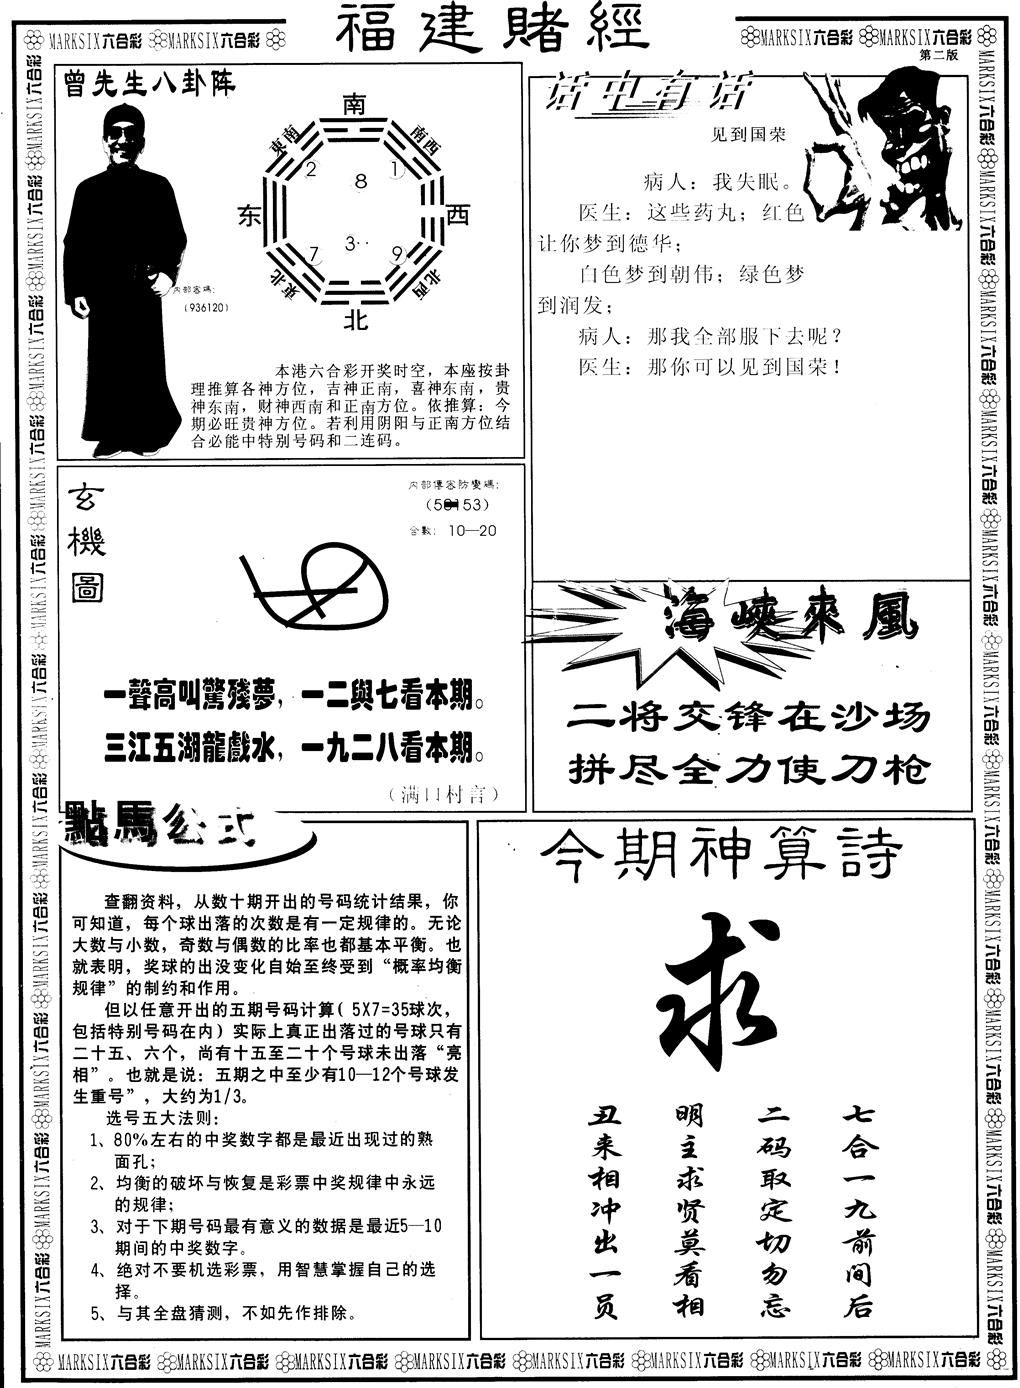 福建賭經
MARKSIX六合彩 MARKSIX六合彩
MARKSIX六合彩 MARKSIX六合彩
第二版
曾先生八卦阵
南
東南
南西
2
8
1
东
西
7
3
9
東北
北西
北
内部密碼:
(936120)
本港六合彩开奖时空，本座按卦
理推算各神方位，吉神正南，喜神东南，贵
神东南，财神西南和正南方位。依推算：今
期必旺贵神方位。若利用阴阳与正南方位结
合必能中特别号码和二连码。
话中有话
见到国荣
病人：我失眠。
医生：这些药丸；红色
让你梦到德华；
白色梦到朝伟；绿色梦
到润发；
病人：那我全部服下去呢？
医生：那你可以见到国荣！
玄機圖
内部傳密防變碼:
合數: 10—20
一聲高叫驚殘夢，一二與七看本期。
三江五湖龍戲水，一九二八看本期。
（满口村言）
海峽來風
二将交锋在沙场
拼尽全力使刀枪
點馬公式
查翻资料，从数十期开出的号码统计结果，你
可知道，每个球出落的次数是有一定规律的。无论
大数与小数，奇数与偶数的比率也都基本平衡。也
就表明，奖球的出没变化自始至终受到“概率均衡
规律”的制约和作用。
但以任意开出的五期号码计算( 5X7=35球次，
包括特别号码在内）实际上真正出落过的号球只有
二十五、六个，尚有十五至二十个号球未出落“亮
相”。也就是说：五期之中至少有10—12个号球发
生重号”，大约为1/3。
选号五大法则:
1、80%左右的中奖数字都是最近出现过的熟
面孔；
2、均衡的破坏与恢复是彩票中奖规律中永远
的规律；
3、对于下期号码最有意义的数据是最近5—10
期间的中奖数字。
4、绝对不要机选彩票，用智慧掌握自己的选
择。
5、与其全盘猜测，不如先作排除。
今期神算詩
求
七合一九前间后
二码取定切勿忘
明主求贤莫看相
丑来相冲出一员
MARKSIX六合彩 MARKSIX六合彩 MARKSIX六合彩 MARKSIX六合彩 MARKSIX六合彩 MARKSIX六合彩 MARKSIX六合彩 MARKSIX六合彩